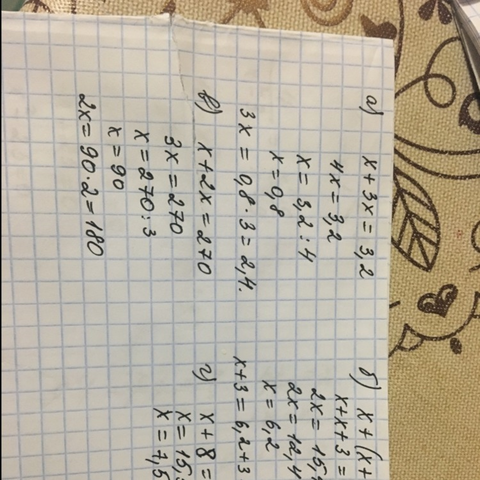 а) x + 3x = 3,2
4x = 3,2
x = 3,2 : 4
x = 0,8
3x = 0,8 · 3 = 2,4.
в) x + 2x = 270
3x = 270
x = 270 : 3
x = 90
2x = 90 · 2 = 180
б) x + (x +
x + x + 3 =
2x = 15,4
2x = 12,4
x = 6,2
x + 3 = 6,2 + 3
г) x + 8 =
x = 15,
x = 7,5